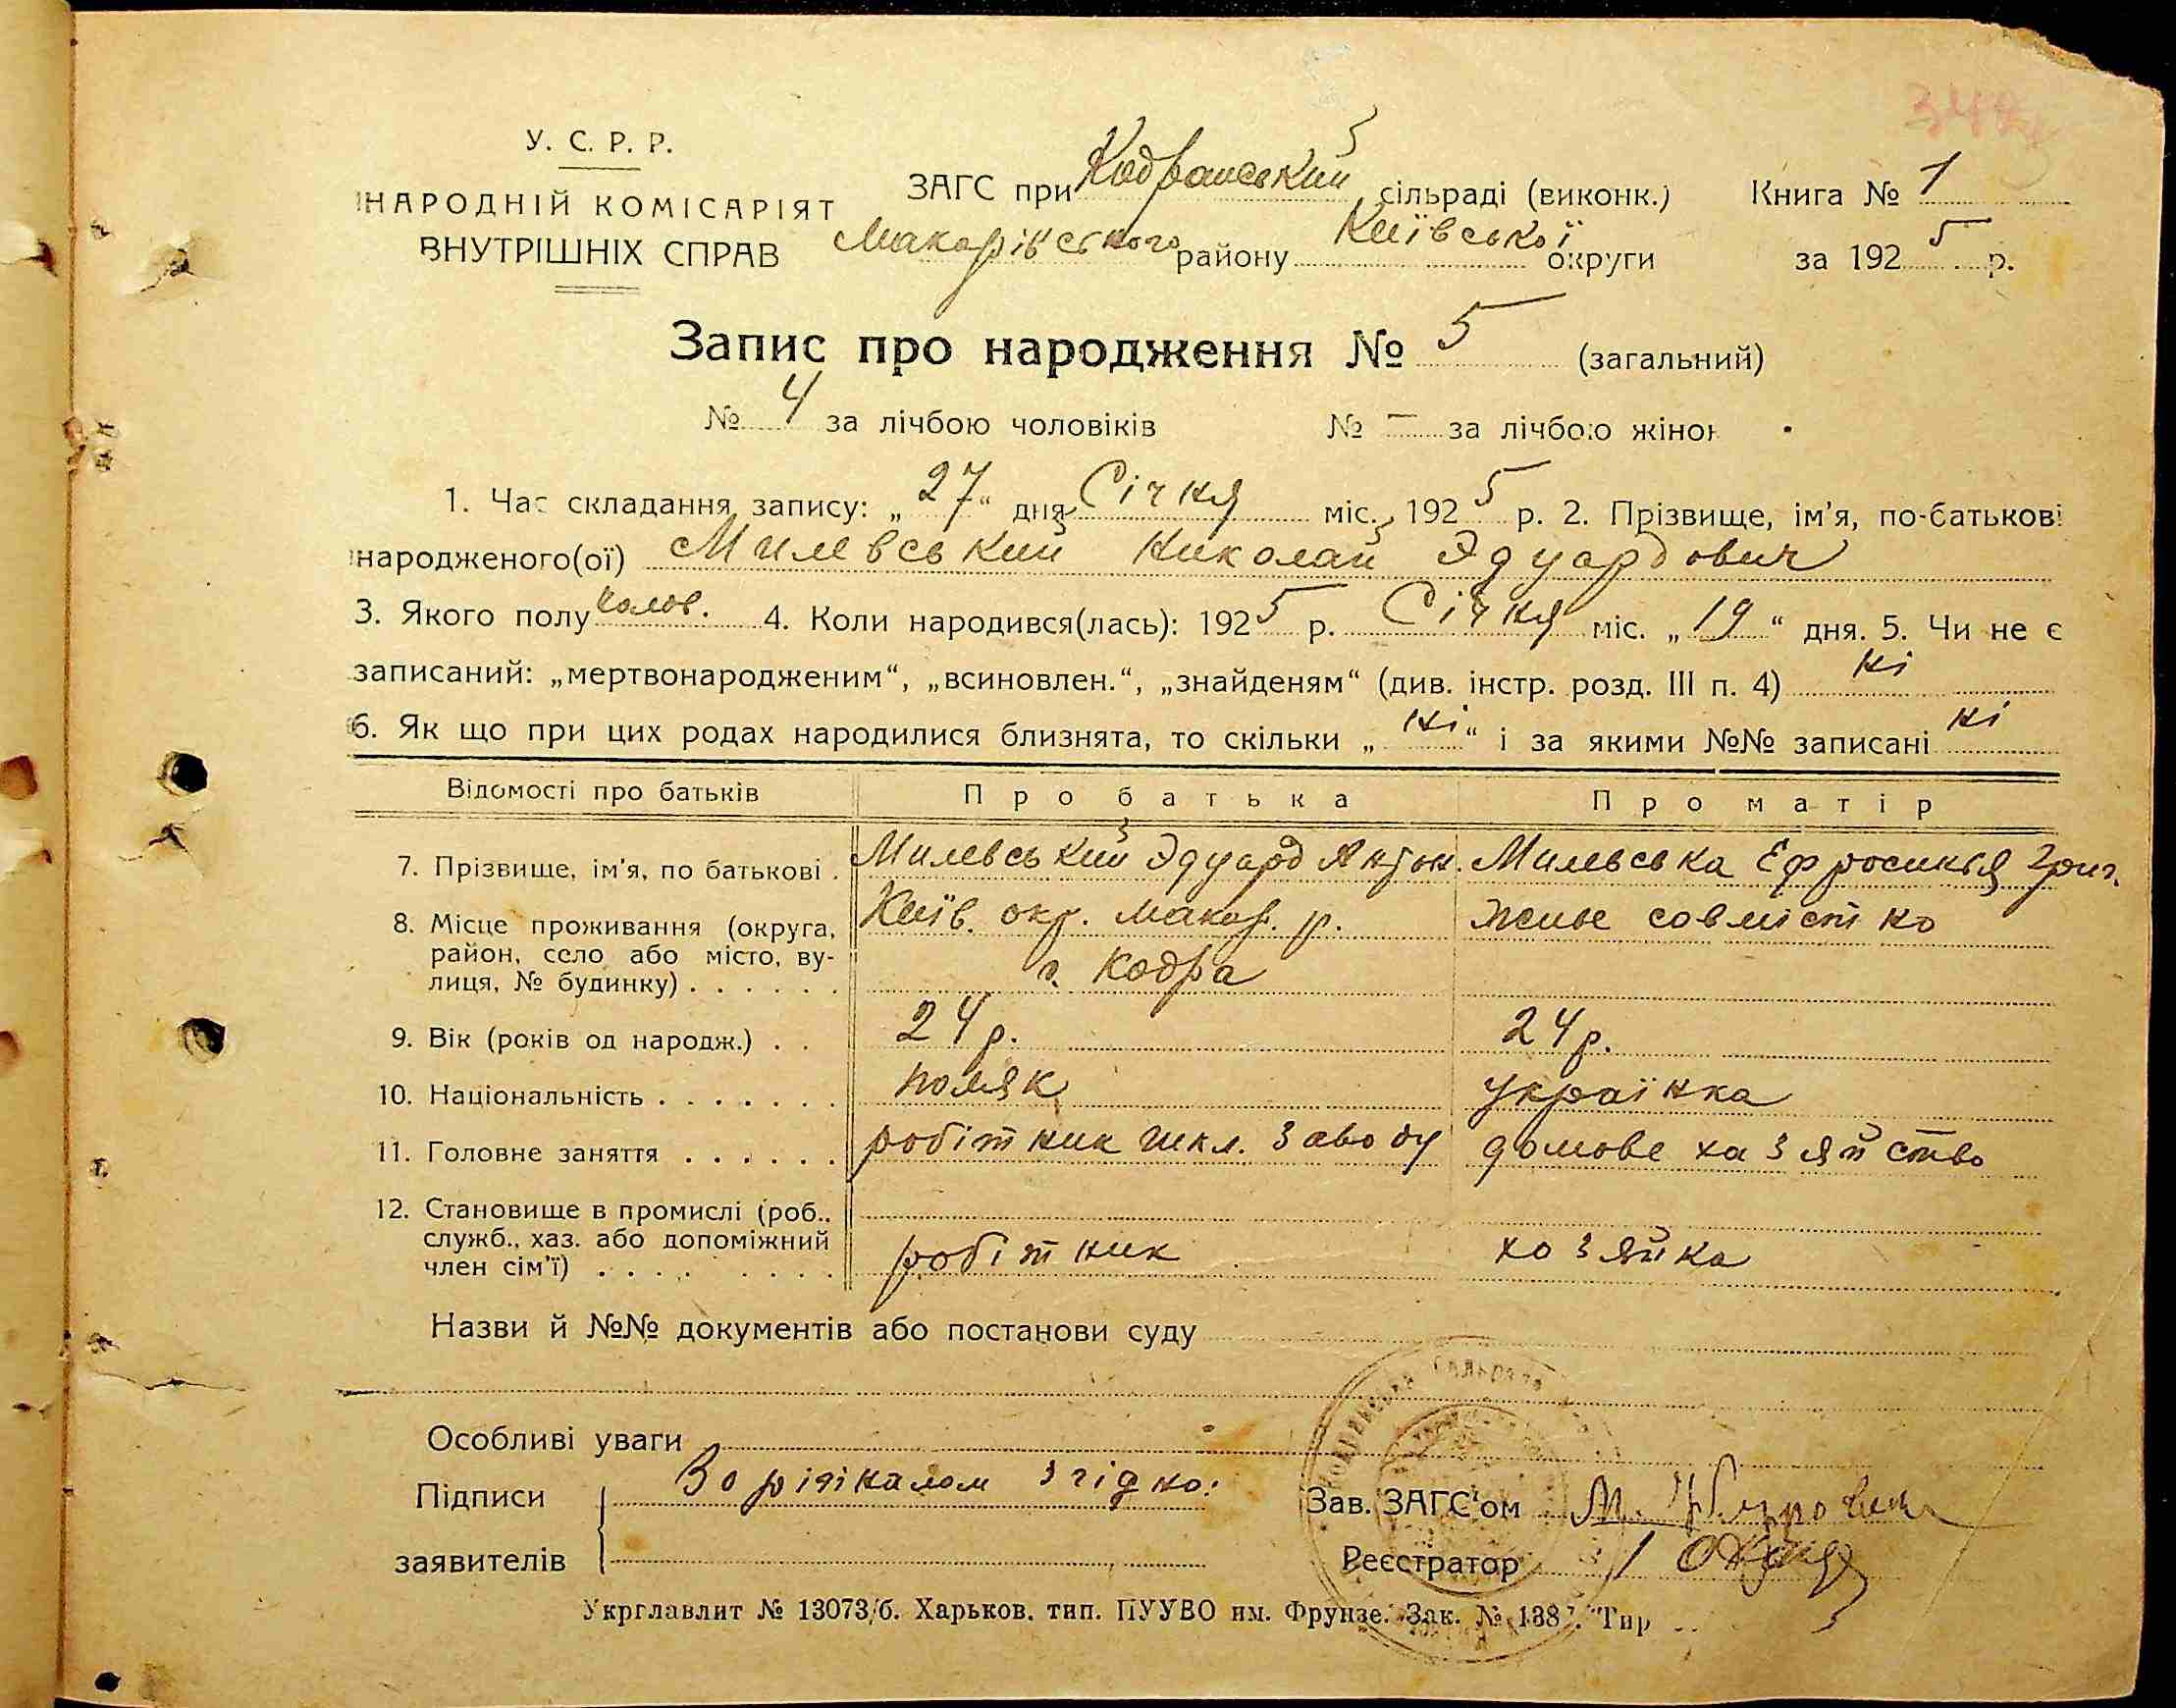 У. С. Р. Р.
НАРОДНІЙ КОМІСАРІЯТ
ВНУТРІШНІХ СПРАВ
ЗАГС при Кодранський сільраді (виконк.) Книга № 1
Макарівського району Київської округи за 1925 р.
Запис про народження № 5 (загальний)
№ 4 за лічбою чоловіків № – за лічбою жінок
1. Час складання запису: „27“ дня Січня міс. 1925 р. 2. Прізвище, ім'я, по-батькові
народженого(ої) Милевський Николай Эдуардович
3. Якого полу чолов. 4. Коли народився(лась): 1925 р. Січня міс. „19“ дня. 5. Чи не є
записаний: „мертвонародженим“, „всиновлен.“, „знайденям“ (див. інстр. розд. III п. 4) ні
6. Як що при цих родах народилися близнята, то скільки „ні“ і за якими №№ записані ні
Відомості про батьків Про батька Про матір
7. Прізвище, ім'я, по батькові . Милевський Эдуард Антон. Милевська Ефросинья Григ.
8. Місце проживання (округа, Київ. окр. Макар. р. живе совмістно
район, село або місто, ву-
лиця, № будинку) . . . . . . с. Кодра
9. Вік (років од народж.) . . 24 р. 24 р.
10. Національність . . . . . . . поляк українка
11. Головне заняття . . . . . . робітник шкл. заводу домове хазяйство
12. Становище в промислі (роб.,
служб., хаз. або допоміжний
член сім'ї) . . . . . . . . робітник хозяйка
Назви й №№ документів або постанови суду
Особливі уваги
Підписи З орігіналом згідно: Зав. ЗАГС'ом М.
заявителів Реєстратор
Укрглавлит № 13073/б. Харьков. тип. ПУУВО им. Фрунзе. Зак. № 138 . Тир